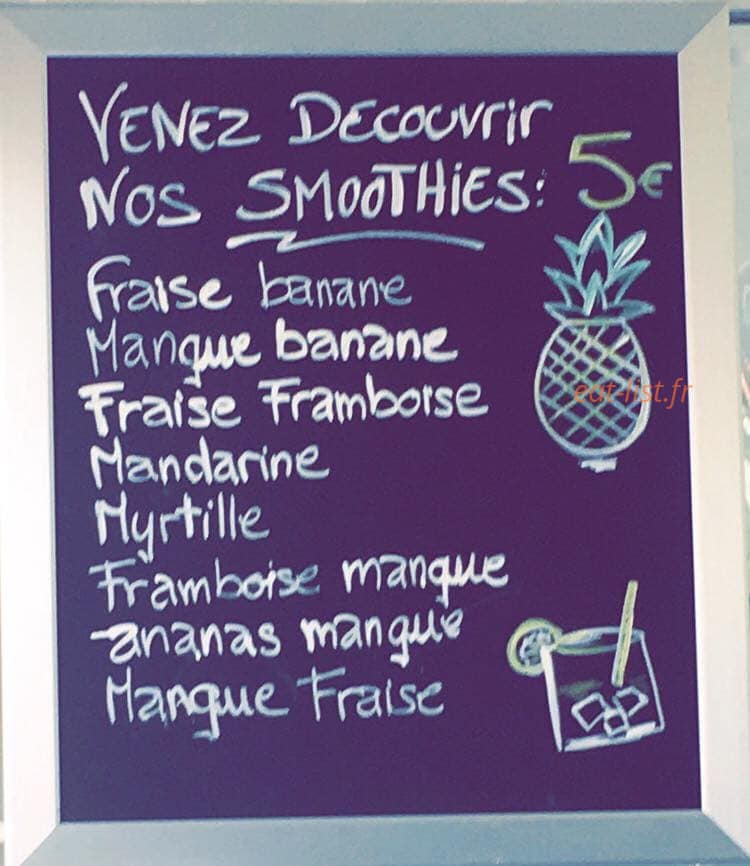 VENEZ DECOUVrir
NOS SMOOTHiES: 5€
Fraise banane
Manque banane
Fraise Framboise
Mandarine
Myrtille
Framboise manque
ananas mangue
Mangue Fraise
eat-list.fr